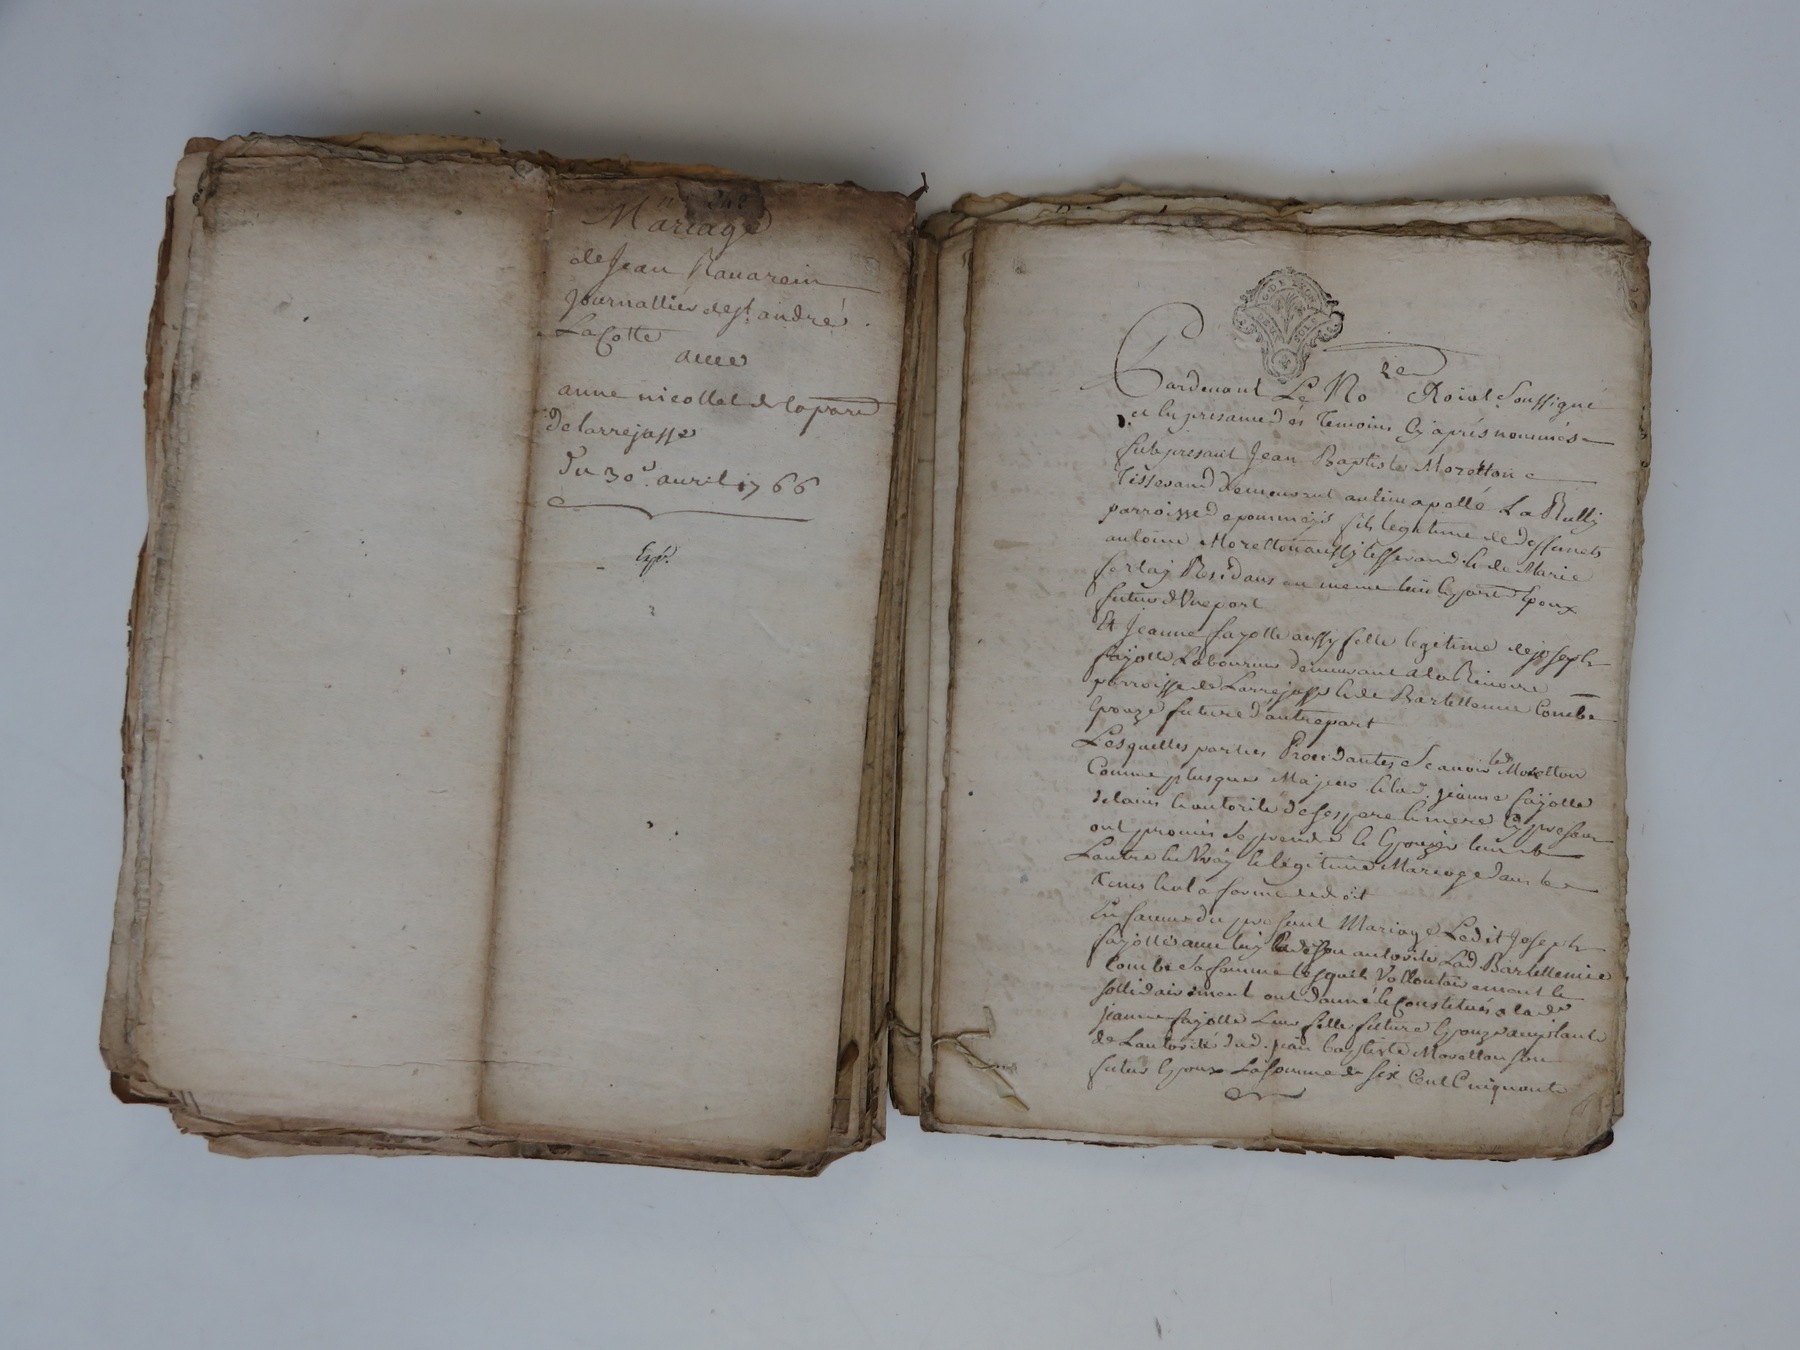 Mariage
de Jean Navarein
journallier de st. andré
La Cotte
avec
anne nicollet de la parr
de larrejasse
Du 30e. avril 1766
Exp.
G DE LYON
DEUX SOLS
Pardevant Le No re Roial Soussigné
et En presance des temoins Cy après nommés
fut present Jean Baptiste Moretton
Tisserand demeurant au lieu apellé La Rully
parroisse de pommeys fils legitime de deffunets
antoine Moretton aussy tisserand et de Marie
ferlay Residans au meme lieu Epoux
futur d'Une part
Et Jeanne fayolle aussy fille legitime de joseph
fayolle Laboureur demeurant a la
parroisse de Larrejasse et de Barthellemie Combe
Epouze future d'autre part
Lesquelles parties Procedantes Scavoir led Moretton
Comme plusque Majeur et lad. jeanne fayolle
de lavis et autorité de ses pere et mere Cy presans
ont promis de prendre et Epouzer lun
Lautre En Vray et légitime Mariage dans le
tems et la forme de droit
En faveur du present Mariage Ledit Joseph
fayolle avec luy et de son autorité Lad Barthellemie
Combe Sa femme lesquels Vollontairement et
sollidairement ont donné et Constitué a lade
jeanne fayolle Leur fille future Epouze acceptante
de Lautorité dud. jean baptiste Moretton son
futur Epoux La somme de Six Cent Cinquante